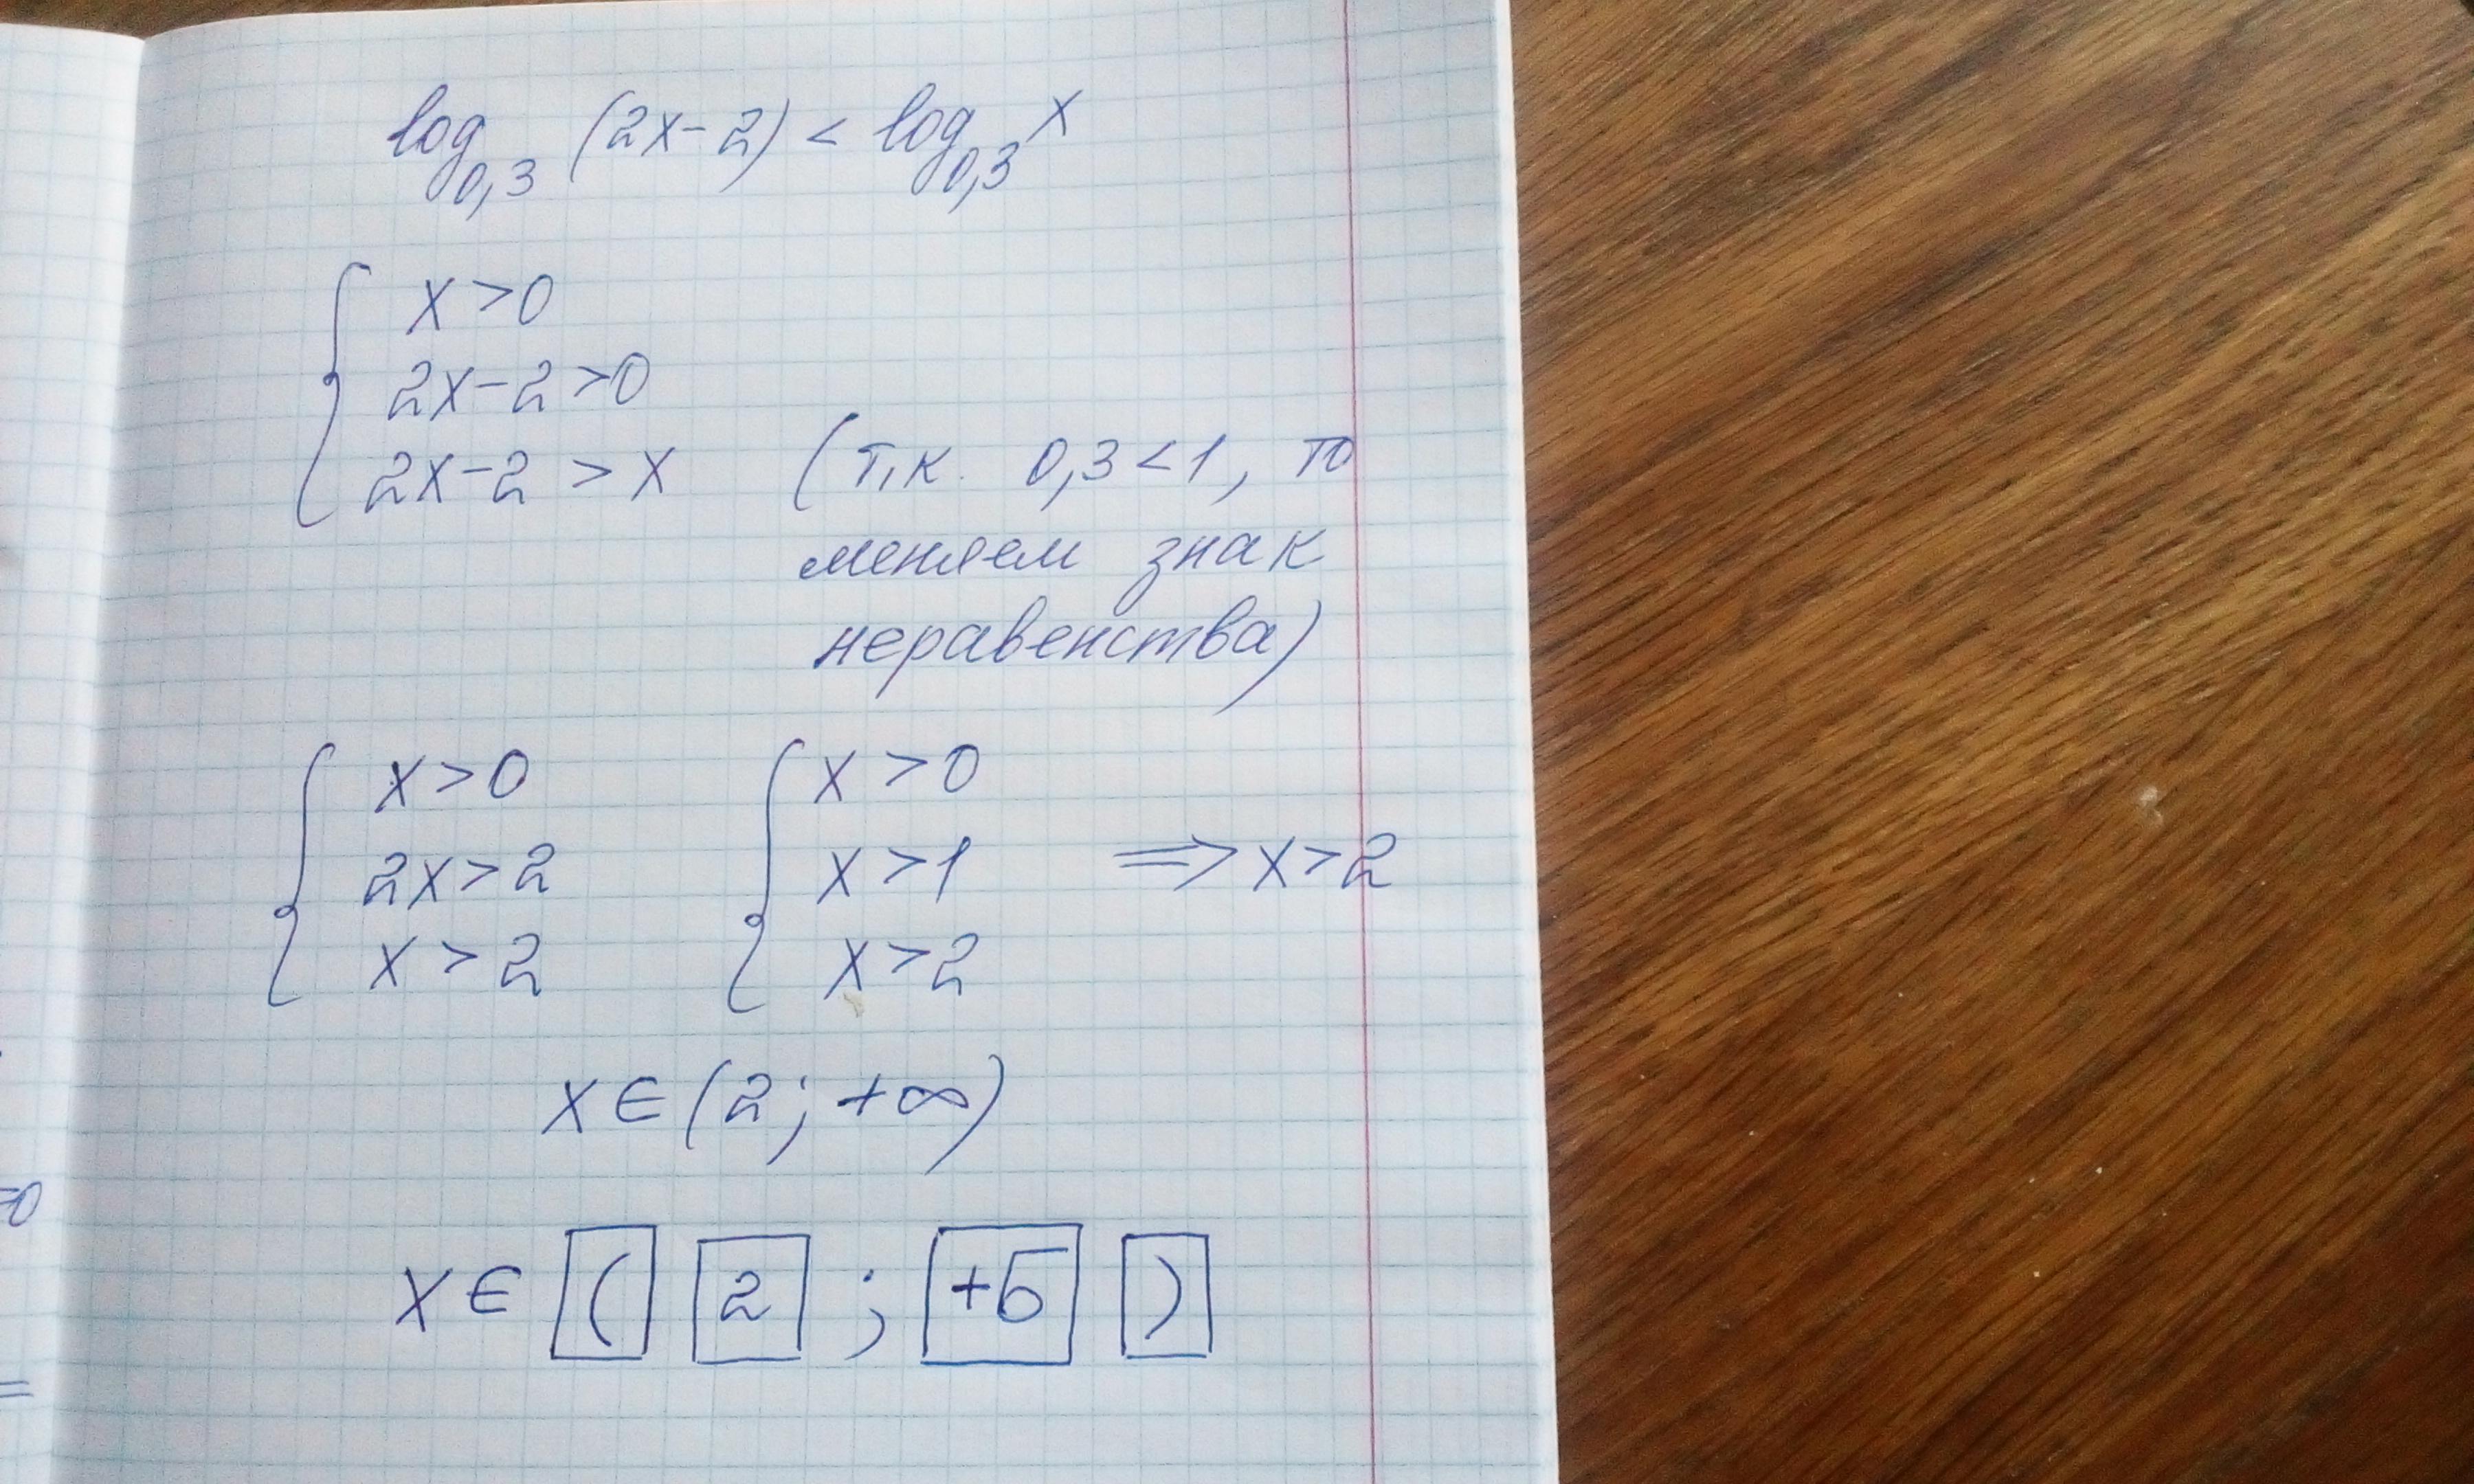 log₀,₃ (2x-2) < log₀,₃ x
x>0
2x-2>0
2x-2 > x (т.к. 0,3<1, то
меняем знак
неравенства)
x>0 x>0
2x>2 x>1 ⇒ x>2
x>2 x>2
x∈(2; +∞)
=0
x∈ ( 2 ; +Б )
=